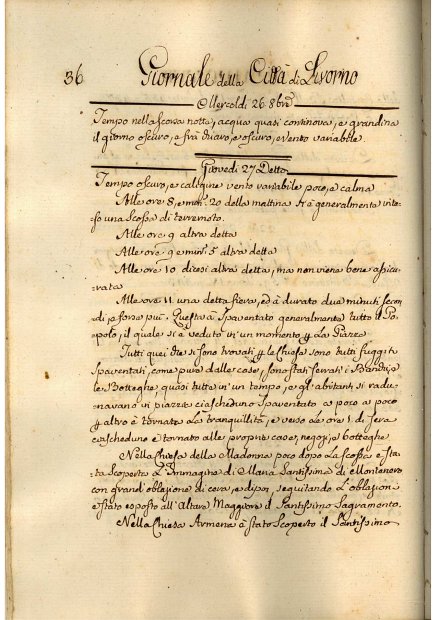 36 Giornale della Città di Livorno
Mercoldi 26 8bre
Tempo nella scorsa notte, acqua quasi continova, e grandina
il giorno oscuro, e frà chiaro, e oscuro, e vento variabile.
Giovedi 27 Detto
Tempo oscuro, e caligine vento variabile poco, e calma
Alle ore 8, e mti 20 della mattina si è generalmente inte-
so una Scossa di terremoto.
Alle ore 9 altra detta
Alle ore 9 e mti 5 altra detta
Alle ore 10 dicesi altra detta, ma non viene bene assicu-
rata
Alle ore 11 una detta fiera, ed à durato due minuti secon
di, e forse più. Questa à Spaventato generalmente tutto il Po-
polo, il quale si è veduto in un momento p Le Piazze
Tutti quei che si sono trovati p le Chiese sono tutti fuggiti
Spaventati, come pure dalle case, sono stati serrati i Bandi, e
le Botteghe quasi tutte in un tempo, e gl'abitanti si radu-
navano in piazze ciascheduno Spaventato a poco a poco
p altro è tornata La tranquillità, e verso Le ore 1 di Sera
ciascheduno è tornato alle proprie case, negozi, e botteghe
Nella Chiesa della Madonna poco dopo La scossa è Sta-
ta Scoperta L'Immagine di Maria Santissima di Montenero
con grand'oblazione di cera, e dipoi, seguitando L'oblazioni
è stato esposto all'Altare Maggiore il Santissimo Sagramento.
Nella Chiesa Armena è Stato Scoperto il Santissimo